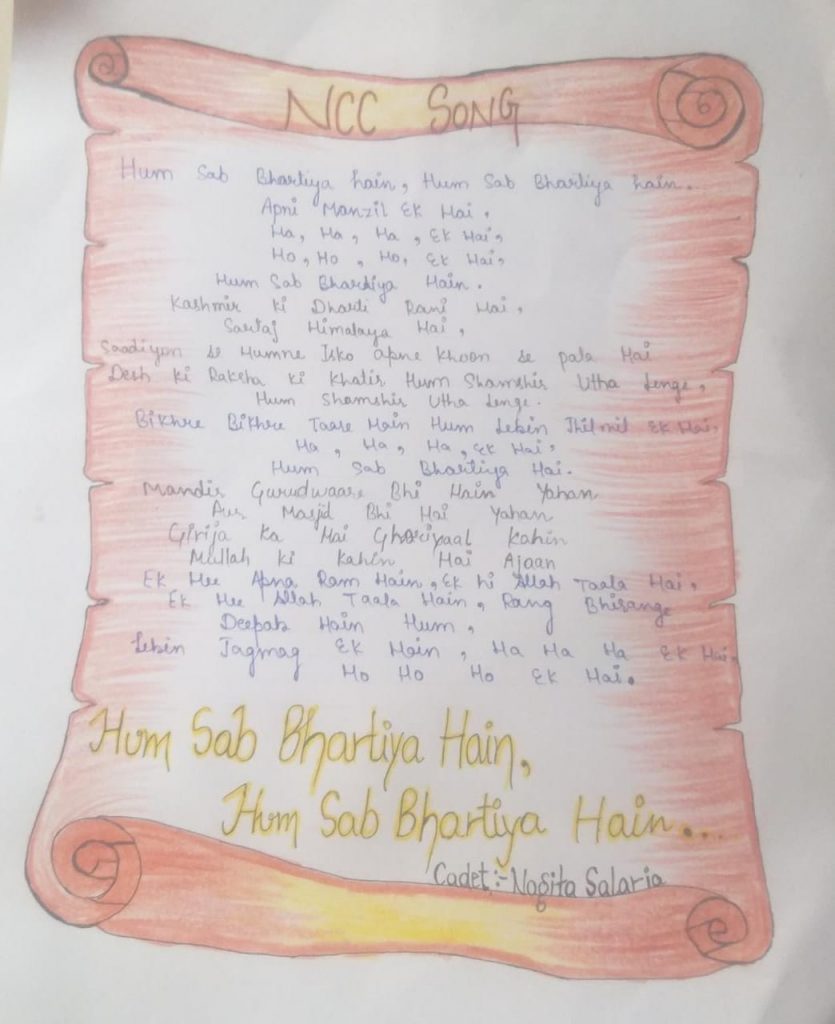 NCC SONG
Hum Sab Bhartiya hain, Hum Sab Bhartiya hain..
Apni Manzil Ek Hai.
Ha, Ha, Ha, Ek Hai,
Ho, Ho, Ho, Ek Hai,
Hum Sab Bhartiya Hain.
Kashmir ki Dharti Rani Hai,
Sartaj Himalaya Hai,
Saadiyon se Humne Isko apne khoon se pala Hai
Desh ki Raksha ki khatir Hum Shamshir Utha lenge,
Hum Shamshir Utha lenge.
Bikhre Bikhre Taare Hain Hum Lekin Jhilmil Ek Hai,
Ha, Ha, Ha, Ek Hai,
Hum Sab Bhartiya Hai.
Mandir Gurudwaare Bhi Hain Yahan
Aur Masjid Bhi Hai Yahan
Girija Ka Hai Ghariyaal Kahin
Mullah ki Kahin Hai Ajaan
Ek Hee Apna Ram Hain, Ek hi Allah Taala Hai,
Ek Hee Allah Taala Hain, Rang Bhirange
Deepak Hain Hum,
Lekin Jagmag Ek Hain, Ha Ha Ha Ek Hai,
Ho Ho Ho Ek Hai.
Hum Sab Bhartiya Hain,
Hum Sab Bhartiya Hain...
Cadet:- Nagita Salaria